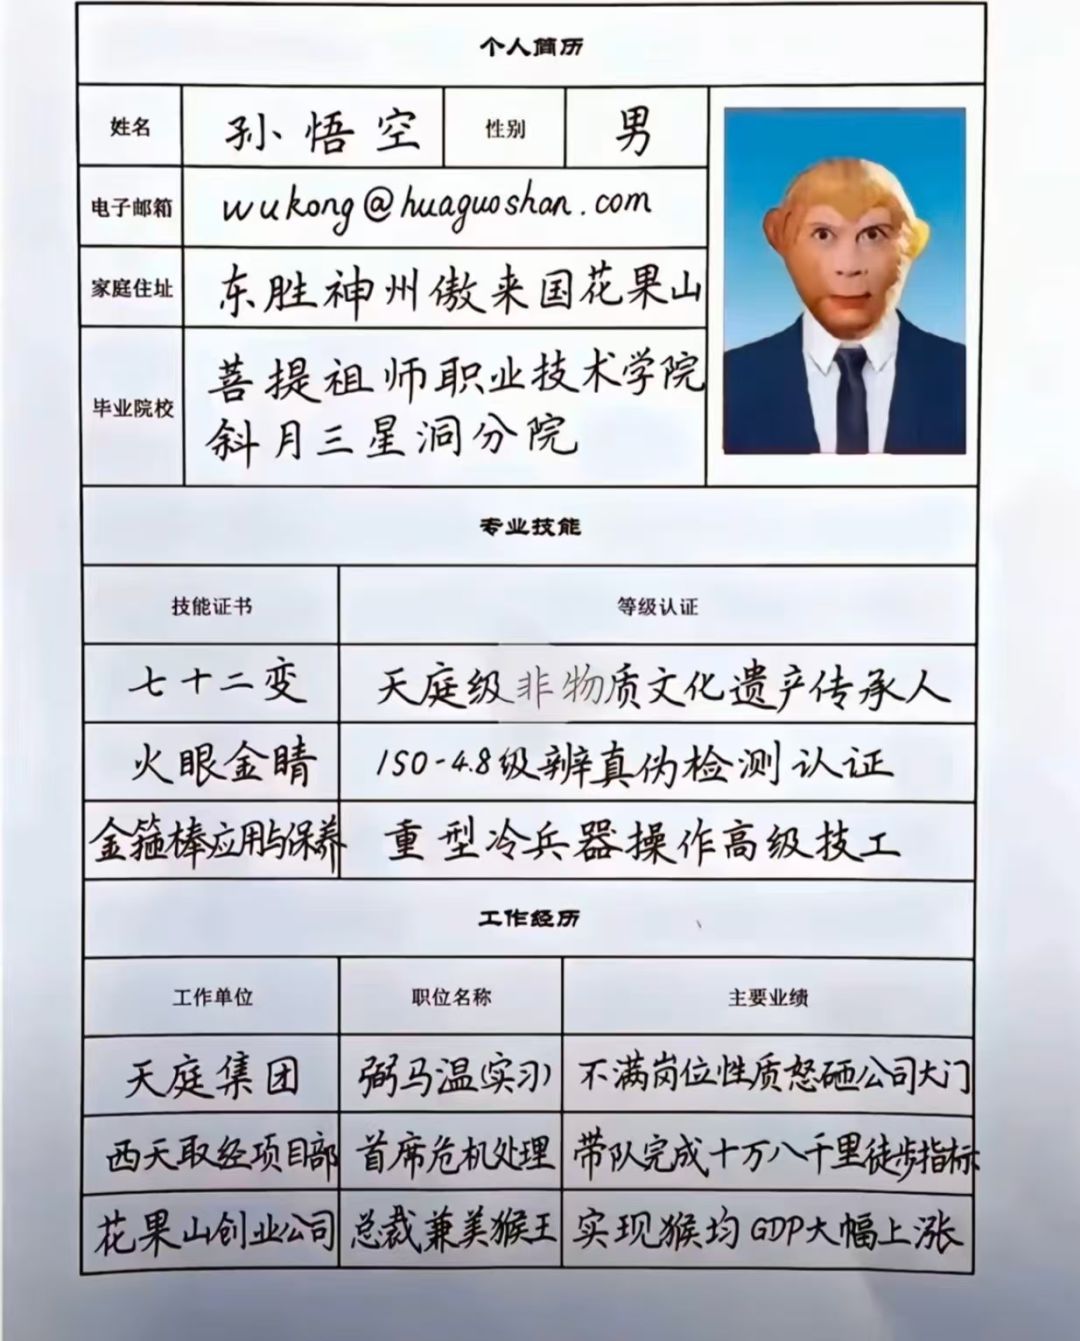 个人简历
姓名 孙悟空 性别 男
电子邮箱 wukong@huaguoshan.com
家庭住址 东胜神州傲来国花果山
毕业院校 菩提祖师职业技术学院
斜月三星洞分院
专业技能
技能证书 等级认证
七十二变 天庭级非物质文化遗产传承人
火眼金睛 ISO-4.8级辨真伪检测认证
金箍棒应用与保养 重型冷兵器操作高级技工
工作经历
工作单位 职位名称 主要业绩
天庭集团 弼马温(实习) 不满岗位性质怒砸公司大门
西天取经项目部 首席危机处理 带队完成十万八千里徒步指标
花果山创业公司 总裁兼美猴王 实现猴均GDP大幅上涨